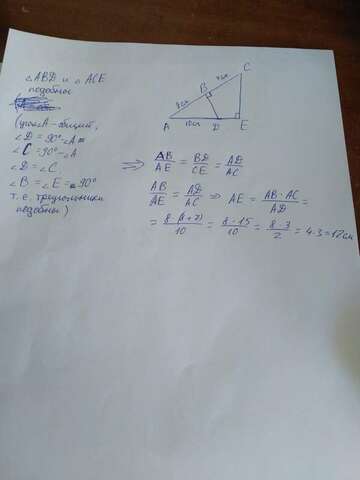 △ABD и △ACE
подобны
(угол A - общий,
∠D = 90° - ∠A
∠C = 90° - ∠A
∠D = ∠C
∠B = ∠E = 90°
т.е. треугольники
подобны)
C
B
7см
8см
A
10см
D
E
⇒ AB/AE = BD/CE = AD/AC
AB/AE = AD/AC ⇒ AE = AB·AC/AD =
= 8·(8+7)/10 = 8·15/10 = 8·3/2 = 4·3 = 12см